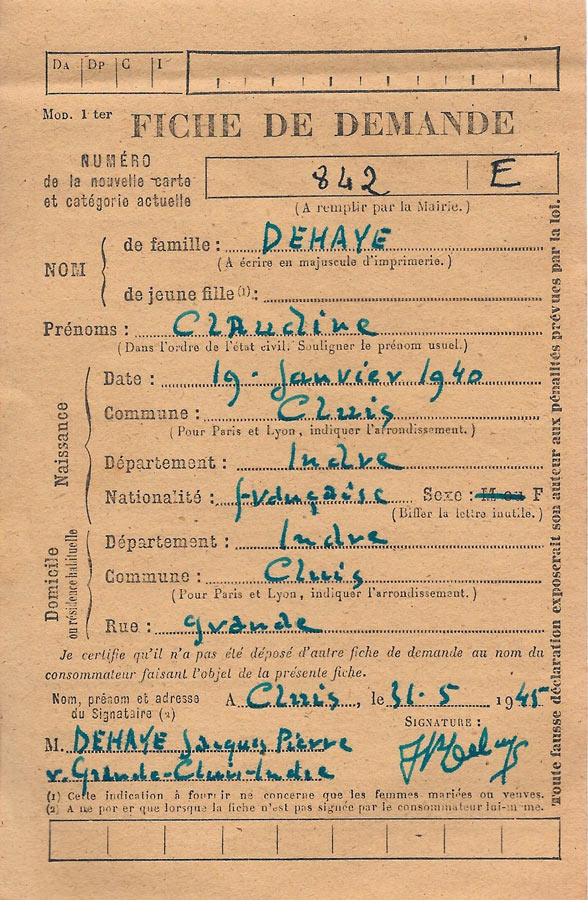 DA DP C I
MOD. 1 ter
FICHE DE DEMANDE
NUMÉRO
de la nouvelle carte
et catégorie actuelle
842 E
(A remplir par la Mairie.)
NOM
de famille : DEHAYE
(A écrire en majuscule d'imprimerie.)
de jeune fille (1) :
Prénoms : Claudine
(Dans l'ordre de l'état civil. Souligner le prénom usuel.)
Naissance
Date : 19 - Janvier 1940
Commune : Cluis
(Pour Paris et Lyon, indiquer l'arrondissement.)
Département : Indre
Nationalité : française Sexe : M ou F
(Biffer la lettre inutile.)
Domicile
ou résidence habituelle
Département : Indre
Commune : Cluis
(Pour Paris et Lyon, indiquer l'arrondissement.)
Rue : grande
Je certifie qu'il n'a pas été déposé d'autre fiche de demande au nom du
consommateur faisant l'objet de la présente fiche.
Nom, prénom et adresse
du Signataire (2)
A Cluis, le 31-5 1945
SIGNATURE :
M. DEHAYE Jacques Pierre
r. Grande-Cluis-Indre
(1) Cette indication à fournir ne concerne que les femmes mariées ou veuves.
(2) A ne porter que lorsque la fiche n'est pas signée par le consommateur lui-même.
Toute fausse déclaration exposerait son auteur aux pénalités prévues par la loi.